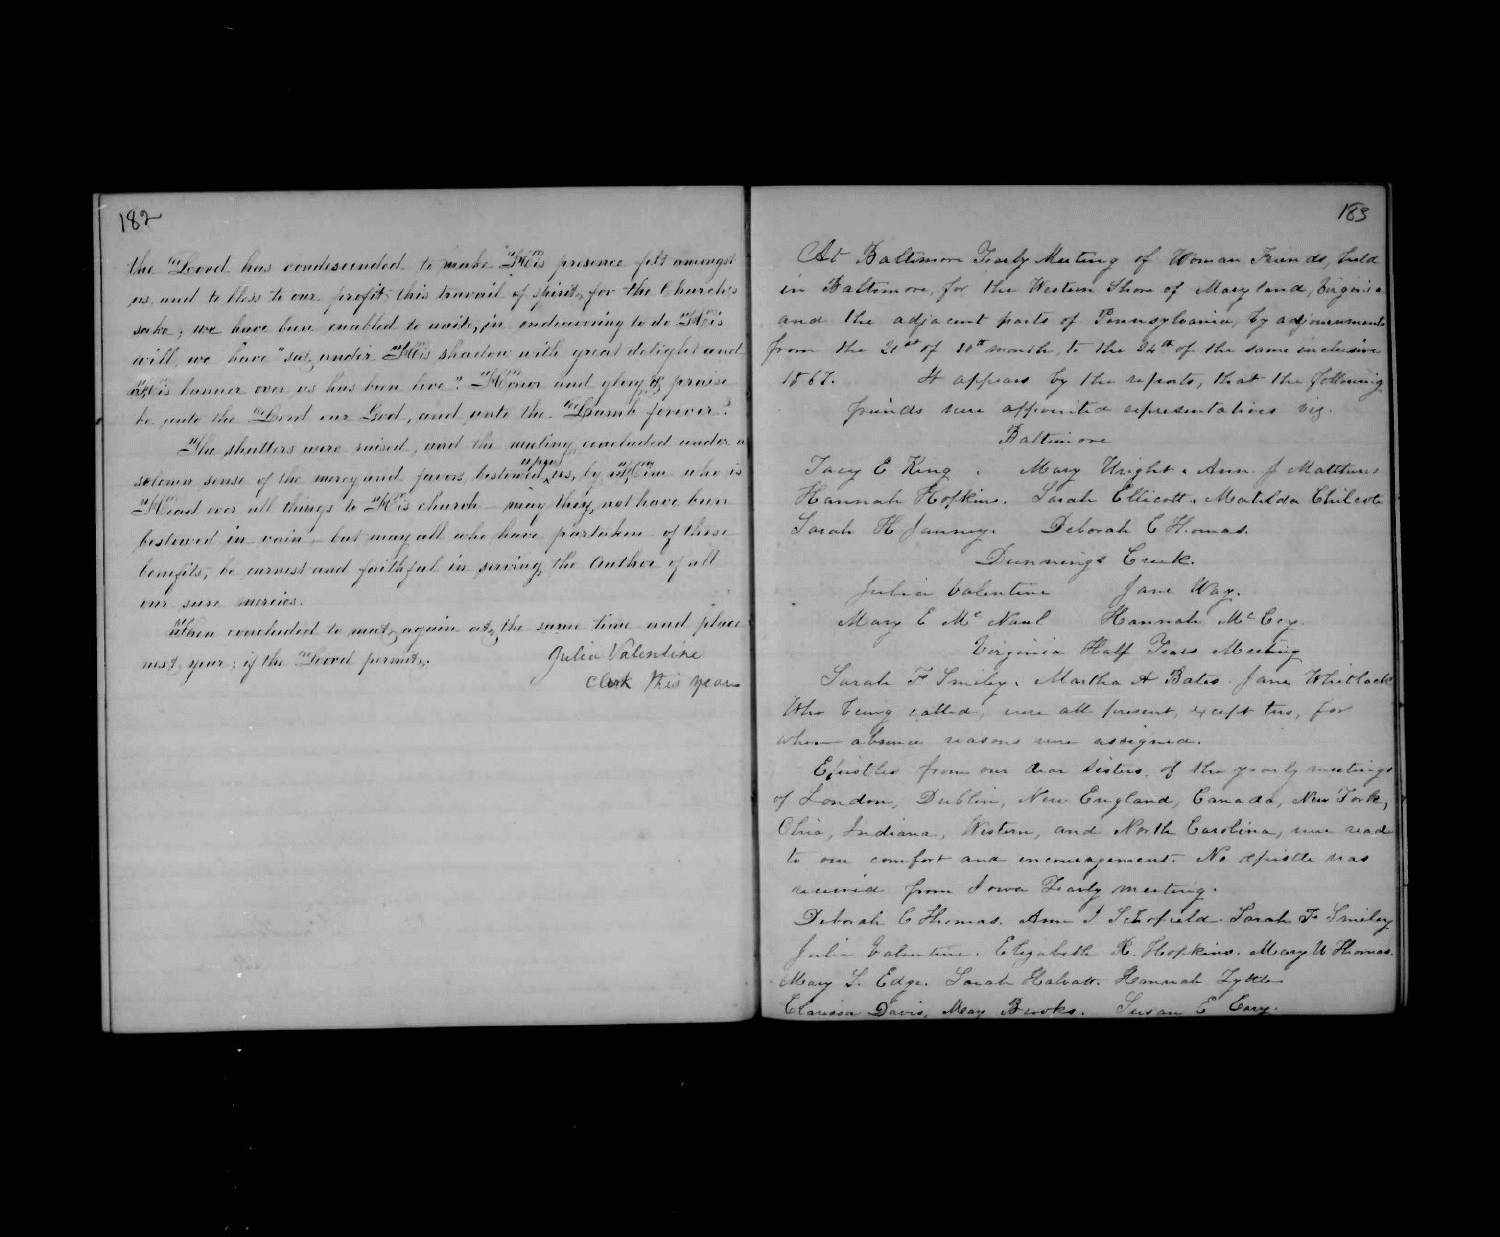 182
the Lord has condescended to make His presence felt amongst
us, and to bless to our profit, this travail of spirit, for the Church's
sake; we have been enabled to unite, in endeavoring to do His
will, we have "sat under His shadow with great delight and
His banner over us has been love". Honor and glory & praise
be unto the Lord our God, and unto the Lamb forever.
The shutters were raised, and the meeting concluded under a
solemn sense of the mercy and favors bestowed upon us, by Him who is
Head over all things to His church may they, not have been
bestowed in vain but may all who have partaken of these
benefits, be earnest and faithful in serving the Author of all
our sure mercies.
Then concluded to meet again at the same time and place
next year; if the Lord permits.
Julia Valentine
Clerk this year
183
At Baltimore Yearly Meeting of Woman Friends, held
in Baltimore, for the Western Shore of Maryland, Virginia
and the adjacent parts of Pennsylvania, by adjournments
from the 21st of 10th month, to the 24th of the same inclusive
1867. It appears by the reports, that the following
friends were appointed representatives viz.
Baltimore
Tacy E King. Mary Wright. Ann J Matthews
Hannah Hopkins. Sarah Ellicott. Matilda Chilcote
Sarah H Janney. Deborah C Thomas.
Dunnings Creek.
Julia Valentine Jane Way.
Mary E Mc Naul Hannah Mc Coy.
Virginia Half Years Meeting
Sarah F Smiley. Martha A Bates. Jane Whitlock
Who being called, were all present, except two, for
whom absence reasons were assigned.
Epistles from our dear sisters of the yearly meetings
of London, Dublin, New England, Canada, New York,
Ohio, Indiana, Western, and North Carolina, were read
to our comfort and encouragement. No epistle was
received from Iowa Yearly meeting.
Deborah C Thomas. Ann J Schofield. Sarah F Smiley
Julia Valentine. Elizabeth R. Hopkins. Mary W Thomas.
Mary S. Edge. Sarah Hannah
Clarissa Davis, May Brooks. Susan E Cary.